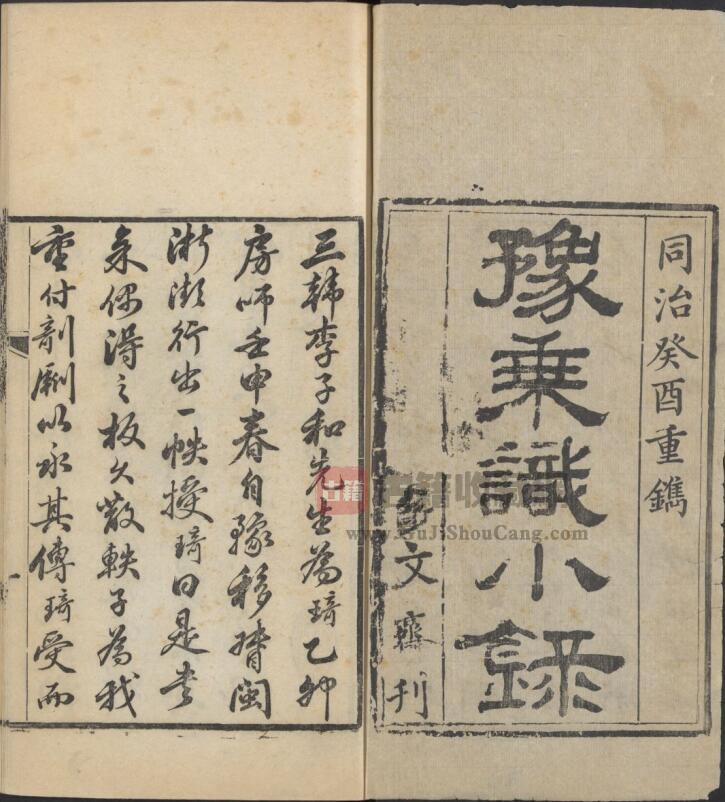 同治癸酉重鐫
豫乗識小録
文齋刊
三韓李子和先生為琦乙卯
房師壬申春自豫移督閩
浙瀕行出一帙授琦曰是書
余偶得之板久散軼子為我
重付剞劂以永其傳琦受而
古籍
古籍收藏
www.GuJiShouCang.com